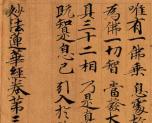 唯有一佛乗息處
為佛一切智當發大
具三十二相乃是真
既知息已引入於
妙法蓮華經卷第三